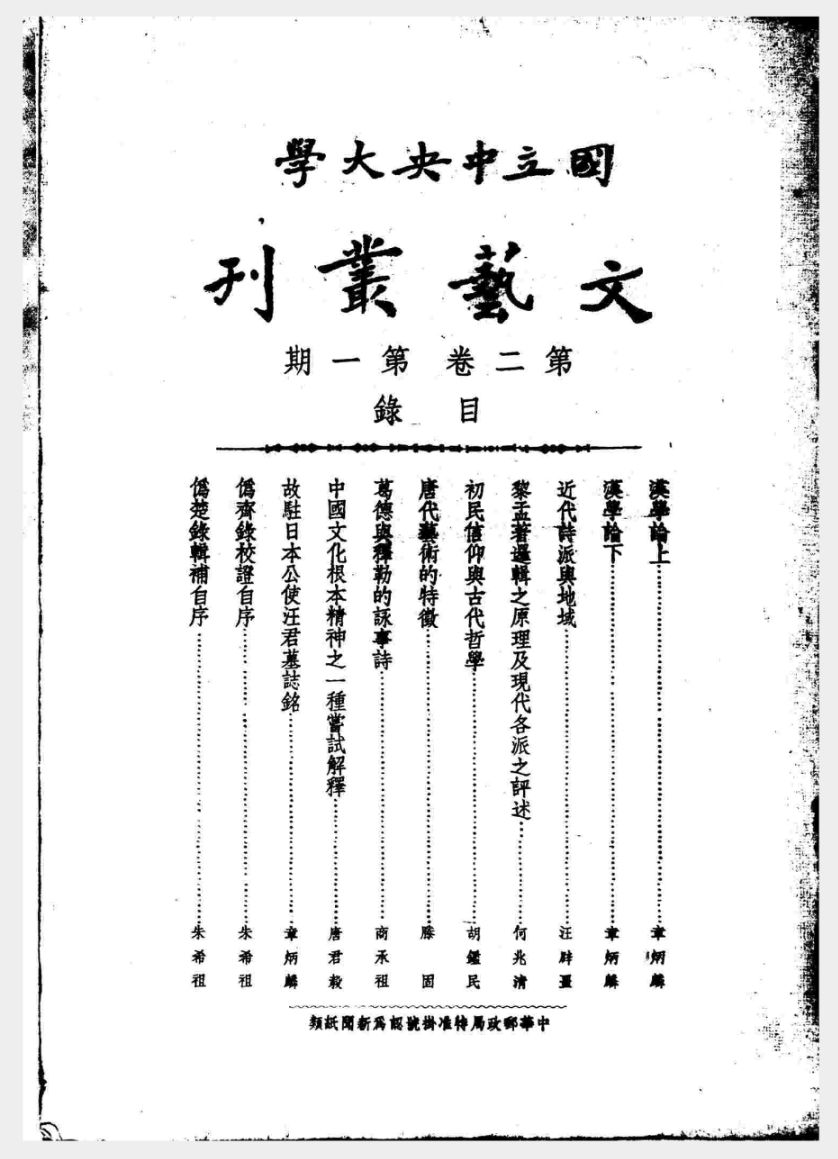 國立中央大學
文藝叢刊
第二卷 第一期
目錄
漢學論上⋯⋯章炳麟
漢學論下⋯⋯章炳麟
近代詩派與地域⋯⋯汪辟畺
黎孟著邏輯之原理及現代各派之評述⋯⋯何兆清
初民信仰與古代哲學⋯⋯胡鑑民
唐代藝術的特徵⋯⋯滕固
葛德與釋勒的詠事詩⋯⋯商承祖
中國文化根本精神之一種嘗試解釋⋯⋯唐君毅
故駐日本公使汪君墓誌銘⋯⋯章炳麟
僞齊錄校證自序⋯⋯朱希祖
僞楚錄輯補自序⋯⋯朱希祖
中華郵政局特准掛號認爲新聞紙類